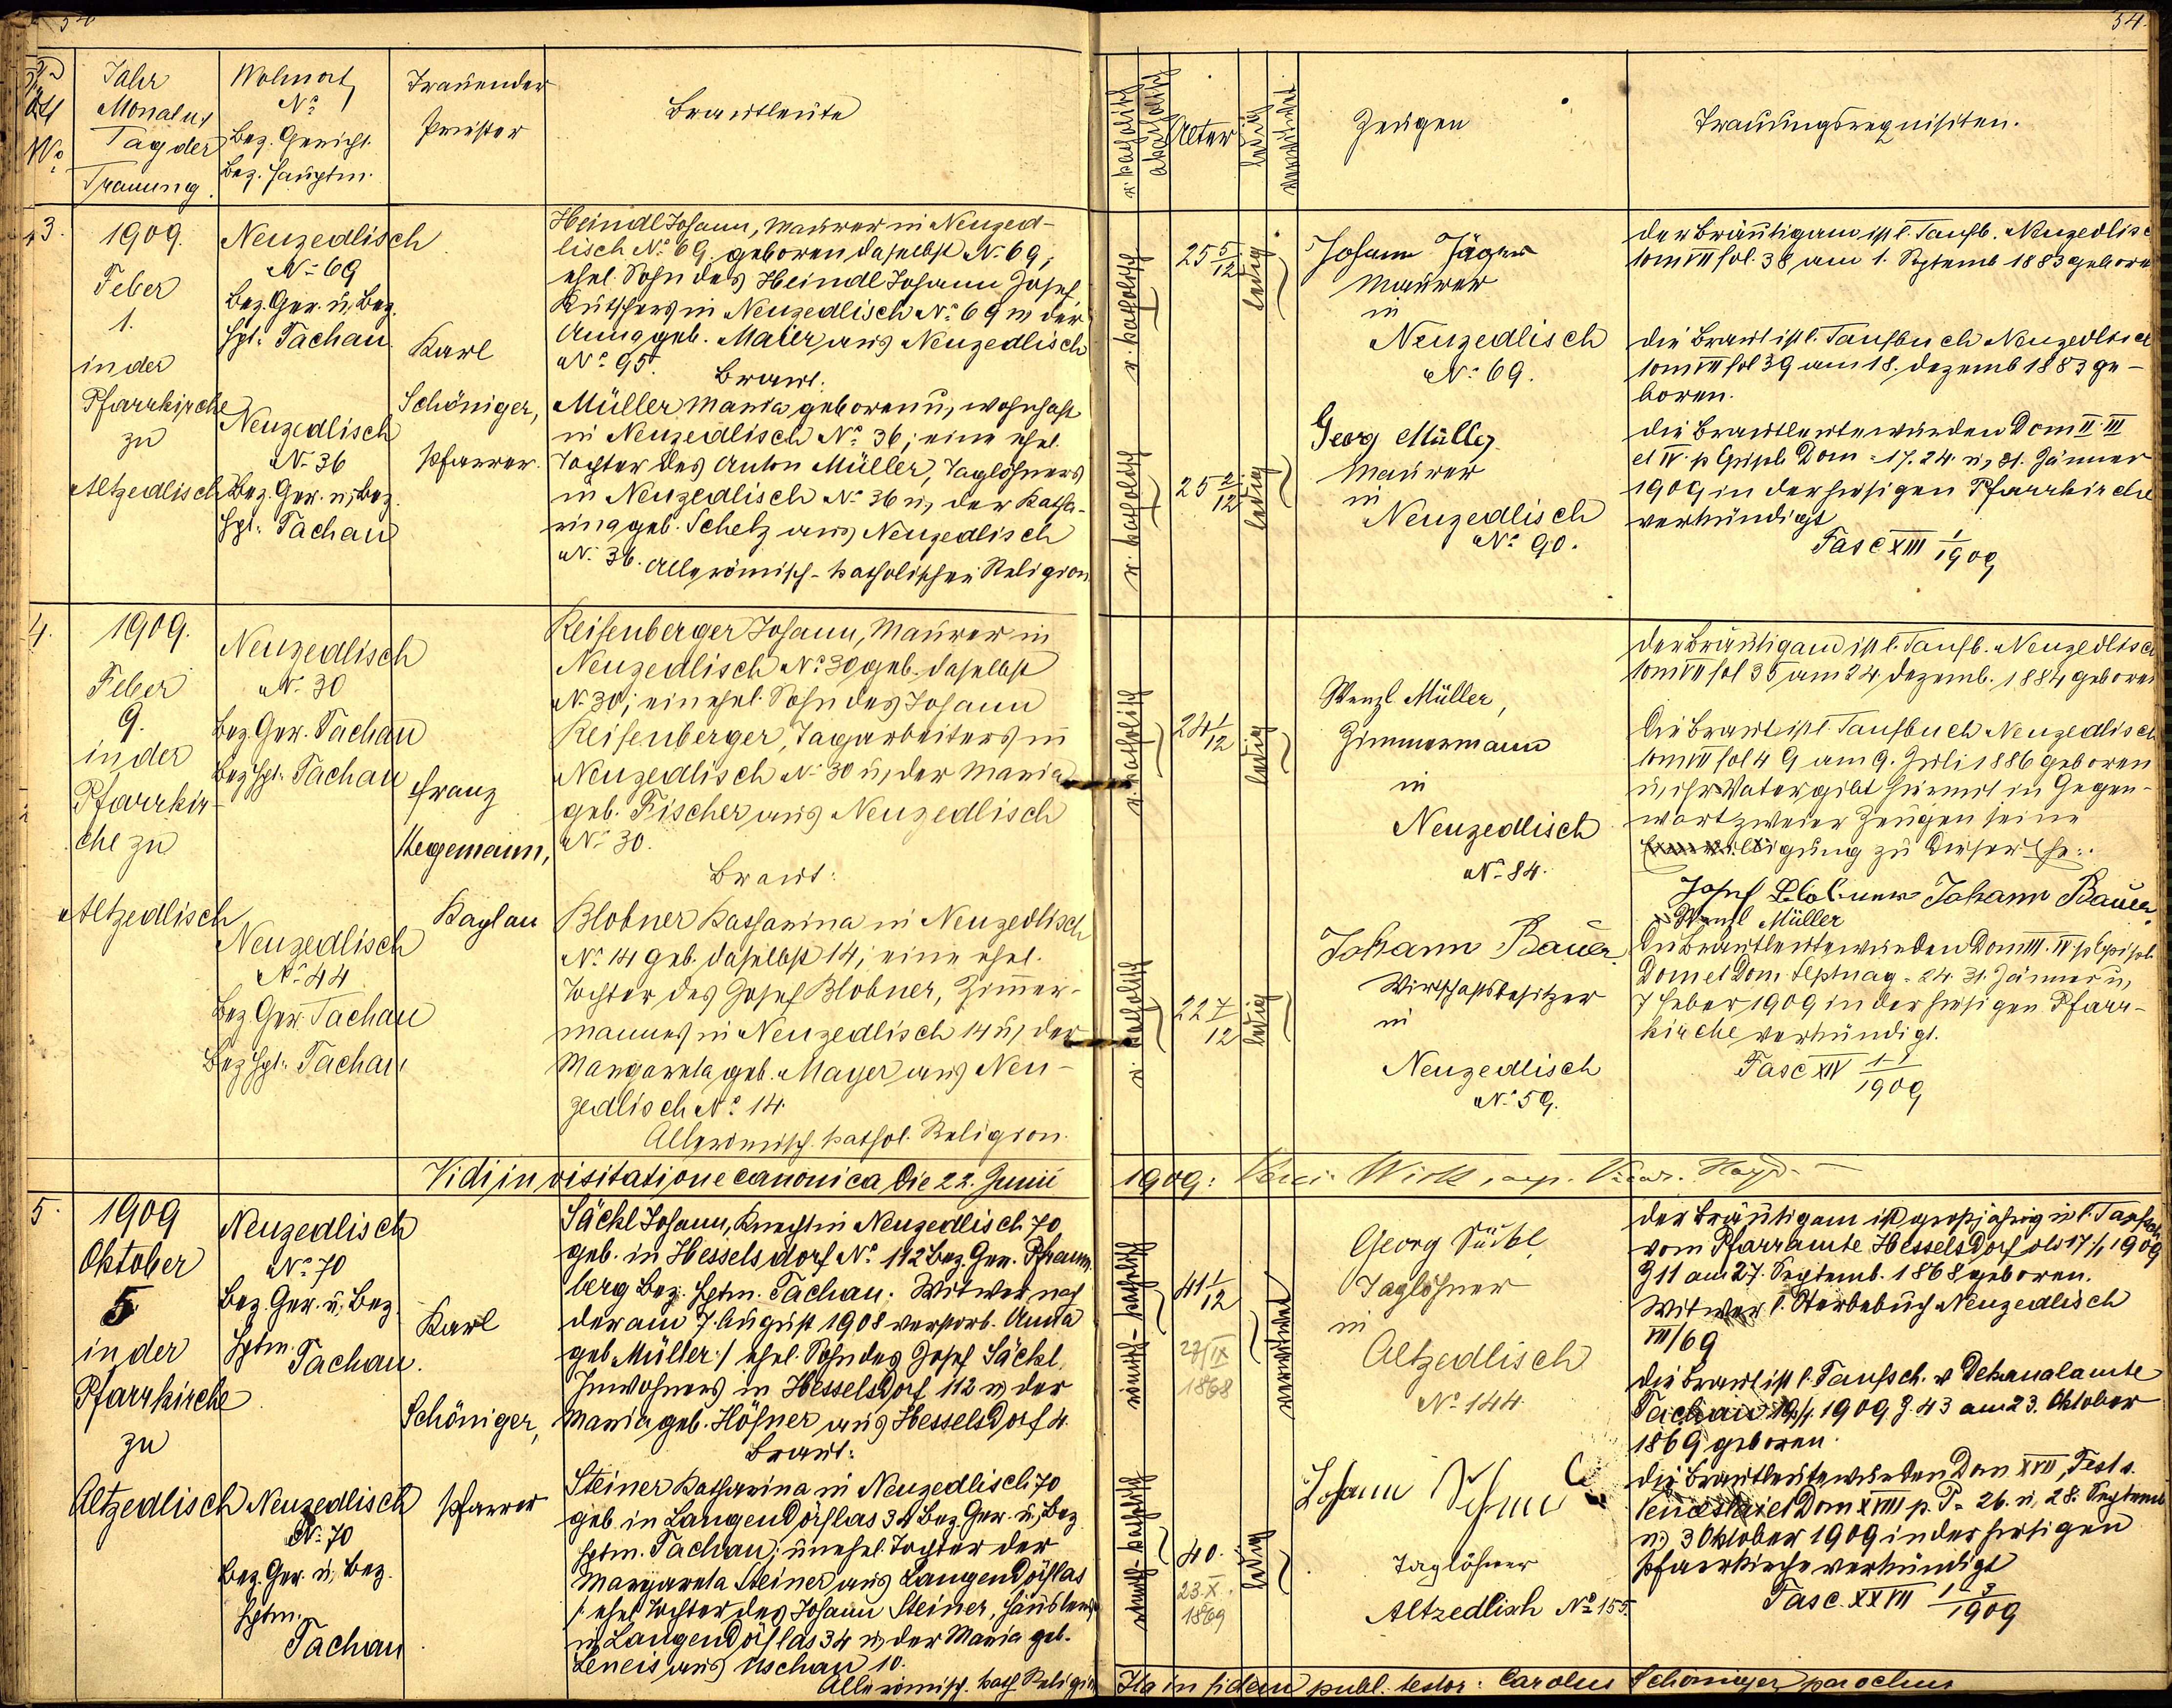 54.
Jahr
Monat u,
Tag der
Trauung.
Wohnort
No
Bez. Gericht.
Bez. Hauptm.
Trauender
Priester
Brautleute
r. katholisch
akatholisch
Alter
ledig
verwitwet
Zeugen
Trauungsrequisiten.
3.
1909.
Feber
1.
in der
Pfarrkirche
zu
Altzedlisch
Neuzedlisch
No 69
Bez. Ger. u, Bez.
Hpt. Tachau
Neuzedlisch
No 36
Bez. Ger. u, Bez.
Hpt. Tachau
Karl
Schöniger,
Pfarrer.
Heindl Johann, Maurer in Neuzed-
lisch No 69. geboren daselbst No 69;
ehel. Sohn des Heindl Johann Josef
Kutschers in Neuzedlisch No 69 u, der
Anna geb. Maier aus Neuzedlisch
No 95.
Braut:
Müller Maria geboren u, wohnhaft
in Neuzedlisch No 36; eine ehel.
Tochter des Anton Müller, Taglöhners
in Neuzedlisch No 36 u, der Katha-
rina geb. Schelz aus Neuzedlisch
No 36. Alle römisch-katholischer Religion
r. katholisch
25 5/12
ledig
r. katholisch
25 2/12
ledig
Johann Jäger
Maurer
in
Neuzedlisch
No 69.
Georg Müller
Maurer
in
Neuzedlisch
No 90.
Der Bräutigam ist l. Taufb. Neuzedlisch
tom VII fol. 38 am 1. Septemb 1883 geboren
Die Braut ist l. Taufbuch Neuzedlisch
tom VII fol 39 am 18. Dezemb 1883 ge-
boren.
Die Brautleute wurden Dom II. III
et IV. p Epiph Dom = 17. 24. u, 31. Jänner
1909 in der hiesigen Pfarrkirche
verkündigt
Fasc XIII 1/1909
4.
1909.
Feber
9.
in der
Pfarrkir-
che zu
Altzedlisch
Neuzedlisch
No 30
Bez Ger. Tachau
Bez Hpt. Tachau
Neuzedlisch
No 44
Bez Ger Tachau
Bez Hpt. Tachau
Franz
Hegemann,
Kaplan
Reisenberger Johann, Maurer in
Neuzedlisch No 30 geb. daselbst
No 30; ein ehel. Sohn des Johann
Reisenberger, Tagarbeiters in
Neuzedlisch No 30 u, der Maria
geb. Fischer aus Neuzedlisch
No 30.
Braut:
Blobner Katharina in Neuzedlisch
No 14 geb. daselbst 14; eine ehel.
Tochter des Josef Blobner, Zimmer-
mannes in Neuzedlisch 14 u, der
Margareta geb. Mayer aus Neu-
zedlisch No 14.
Alle römisch. kathol. Religion.
r. katholisch
24 1/12
ledig
r. katholisch
22 7/12
ledig
Wenzl Müller,
Zimmermann
in
Neuzedlisch
No 84.
Johann Bauer.
Wirtschaftsbesitzer
in
Neuzedlisch
No 59.
Der Bräutigam ist l. Taufb. Neuzedlisch
tom VII fol 35 am 24 Dezemb. 1884 geboren
Die Braut ist l. Taufbuch Neuzedlisch
tom VII fol 49 am 9. Juli 1886 geboren
u, ihr Vater gibt hiermit in Gegen-
wart zweier Zeugen seine
Einwilligung zu dieser Ehe:
Josef Blobner Johann Bauer.
Wenzl Müller
Die Brautleute wurden Dom III. IV. p Epiph.
Dom et Dom Septuag = 24. 31. Jänner u,
7 Feber 1909 in der hiesigen Pfarr-
kirche verkündigt.
Fasc XIV 1-1/1909
Vidi in visitatione canonica die 22. Junii 1909:
5.
1909
Oktober
5
in der
Pfarrkirche
zu
Altzedlisch
Neuzedlisch
No 70
Bez. Ger. u, Bez.
Hptm.
Tachau.
Neuzedlisch
No 70
Bez. Ger. u, Bez.
Hptm.
Tachau
Karl
Schöniger,
Pfarrer
Säckl Johann, Knecht in Neuzedlisch 70,
geb. in Hesselsdorf No 112 Bez. Ger. Pfraum
berg Bez. Hptm. Tachau. Witwer nach
der am 7. August 1908 verstorb. Anna
geb Müller / ehel. Sohn des Josef Säckl,
Inwohners in Hesselsdorf 112 u, der
Maria geb. Höfner aus Hesselsdorf 4.
Braut:
Steiner Katharina in Neuzedlisch 70
geb. in Langendörflas 34 Bez. Ger. u, Bez
Hptm. Tachau; unehel. Tochter der
Margareta Steiner aus Langendörflas
/ ehel Tochter des Johann Steiner, Häuslers
in Langendörflas 34 u, der Maria geb.
Leneis aus Uschau 10.
Alle römisch. kath Religion
römisch-katholisch
41 1/12
27/IX
1868
verwitwet
römisch-katholisch
40.
23. X.
1869
ledig
Georg
Taglöhner
in
Altzedlisch
No 144.
Johann
Taglöhner
Altzedlisch No 155.
Der Bräutigam ist großjährig u, l. Taufsch
vom Pfarramte Hesselsdorf dto 17/1 1909
Z 11 am 27. Septemb. 1868 geboren.
Witwer l. Sterbebuch Neuzedlisch
VII/69
Die Braut ist l. Taufsch. v Dekanalamte
Tachau 19/1. 1909 Z. 43 am 23. Oktober
1869 geboren.
Die Brautleute wurden Dom XVII, Fest s.
et Dom XVIII p. P = 26. u, 28. Septemb
u, 3 Oktober 1909 in der hiesigen
Pfarrkirche verkündigt
Fasc. XXVII 1-3/1909
Ita in fidem publ. testor: Carolus Schöniger, parochus